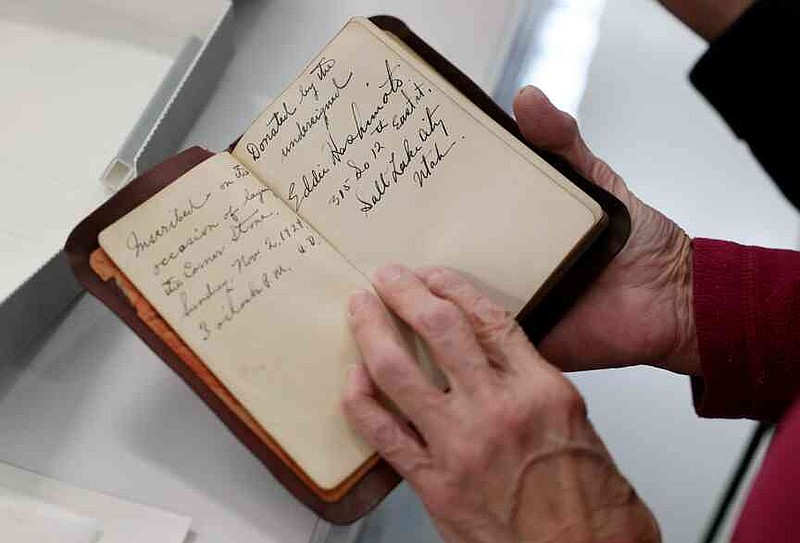 Inscribed on the
occasion of laying
the Corner Stone.
Sunday Nov 2, 1924
3 o'clock P.M. A.D.
Donated by the
undersigned
Eddie Hashimoto
315 So 12th East st.
Salt Lake City
Utah.